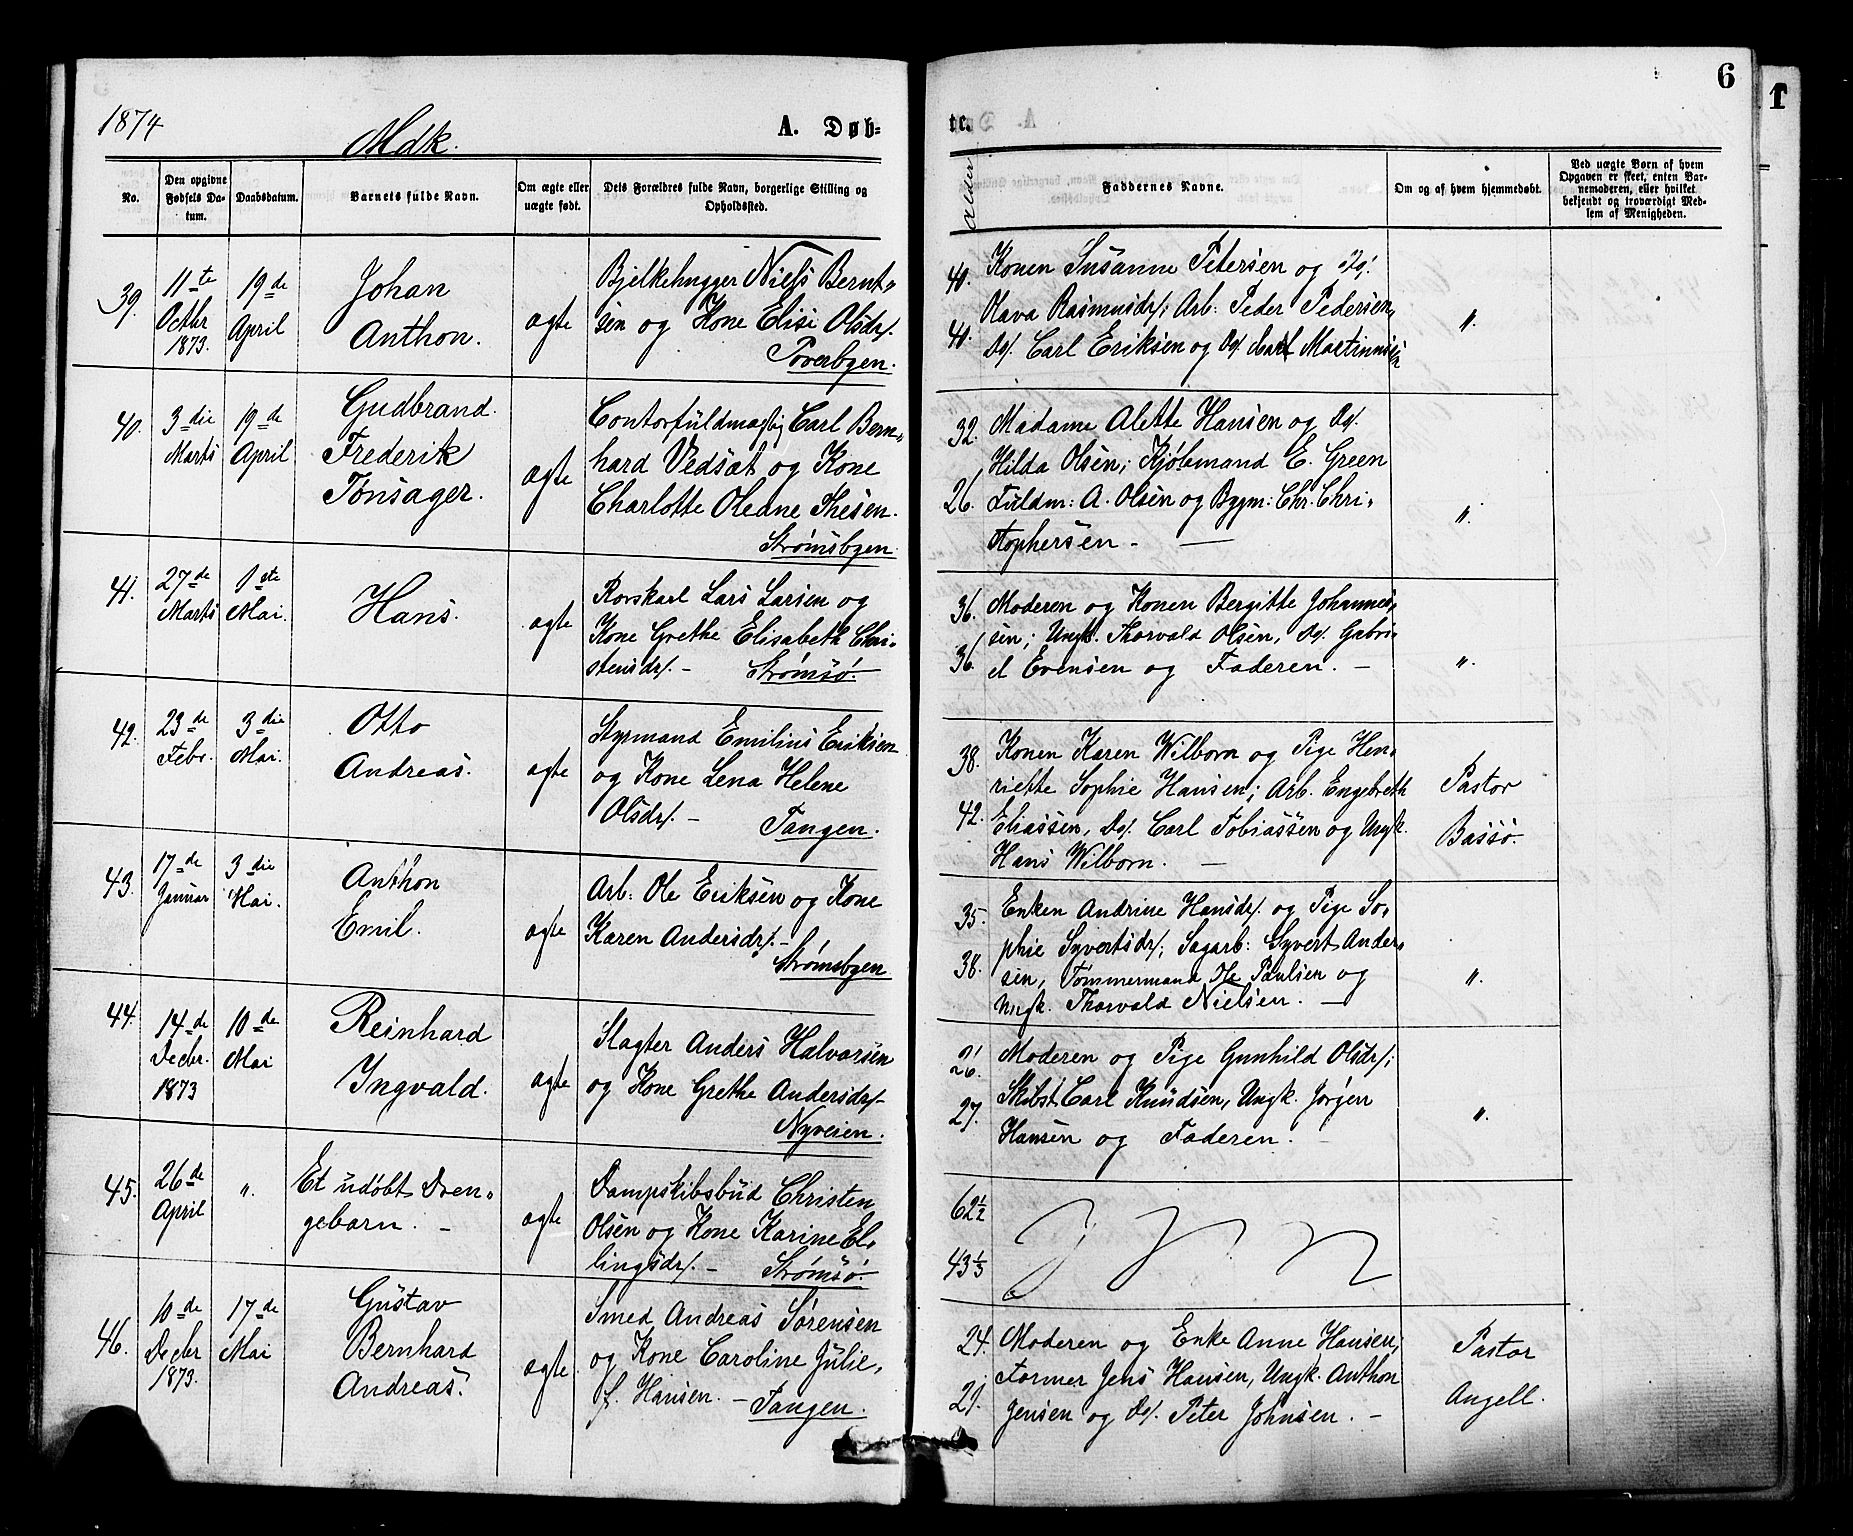 1874
Mdk.
A. Døb-
No.
Den opgivne
Fødsels Da-
tum.
Daabsdatum.
Barnets fulde Navn.
Om ægte eller
uægte født.
Dets Forældres fulde Navn, borgerlige Stilling og
Opholdssted.
39.
11te
Octbr
1873.
19de
April
Johan
Anthon.
ægte
Bjelkehugger Niels Bernt-
sen og Kone Elise Olsdr/.
40.
3die
Marts
19de
April
Gudbrand
Frederik
Tonsager.
ægte
Contorfuldmægtig Carl Bern-
hard Vedsæt og Kone
Charlotte Oleane Thesen.
Strømsbgen.
41.
27de
Marts
1ste
Mai.
Hans.
ægte
Rorskarl Lars Larsen og
Kone Grethe Elisabeth Chri-
stensdr/. - Strømsø.
42.
23de
Febr.
3die
Mai.
Otto
Andreas.
ægte
Styrmand Emilius Eriksen
og Kone Lena Helene
Olsdr/. - Tangen.
43.
17de
Januar
3die
Mai.
Anthon
Emil.
ægte
Arb: Ole Eriksen og Kone
Karen Andersdr/. -
Strømsbgen
44.
14de
Decbr.
1873
10de
Mai
Reinhard
Ingvald.
ægte
Slagter Anders Halvorsen
og Kone Grethe Andersdr/-
Nyveien.
45.
26de
April
".
Et udøbt Dren-
gebarn. -
ægte
Dampskibsbud Christen
Olsen og Kone Karine El-
lingsdr/. - Strømsø.
46.
10de
Decbr
1873.
17de
Mai
Gustav
Bernhard
Andreas.
ægte
Smed Andreas Sørensen
og Kone Caroline Julie,
f. Hansen. - Tangen.
6
1
te.
Alder
Faddernes Navne.
Om og af hvem hjemmedøbt.
Ved uægte Børn af hvem
Opgaven er skeet, enten Bar-
nemoderen, eller hvilket
bekjendt og troværdigt Med-
lem af Menigheden.
40.
41.
Konen Susanne Petersen og Do/.
Olava Rasmusdr/; Arb: Peder Pedersen,
Do/. Carl Eriksen og Do/ Carl Martinnisen
".
32.
26.
Madame Alette Hansen og Do/.
Hilda Olsen; Kjøbmand E. Green
Fuldm: A. Olsen og Bygm: Chr. Chri-
stophersen -
".
36.
36.
Moderen og Konen Bergitte Johannes-
sen; Ungk. Thorvald Olsen, Do/. Gabri-
el Evensen og Faderen. -
".
38.
42.
Konen Karen Wilborn og Pige Hen-
riette Sophie Hansen; Arb. Engebreth
Eliassen, Do/. Carl Tobiassen og Ungk.
Hans Wilborn. -
Pastor
Bassø.
35.
38.
Enken Andrine Hansdr/. og Pige So-
phie Syvertsdr/; Sagarb: Syvert Ander-
sen, Tømmermand Ole Paulsen og
Ungk. Thorvald Nielsen. -
".
26.
27.
Moderen og Pige Gunhild Olsdr/;
Skibst. Carl Knudsen, Ungk. Jørgen
Hansen og Faderen. -
".
62½
43⅓
24.
29.
Moderen og Enke Anne Hansen;
Former Jens Hansen, Ungk. Anthon
Jensen og Do/. Peter Johnsen. -
Pastor
Angell.